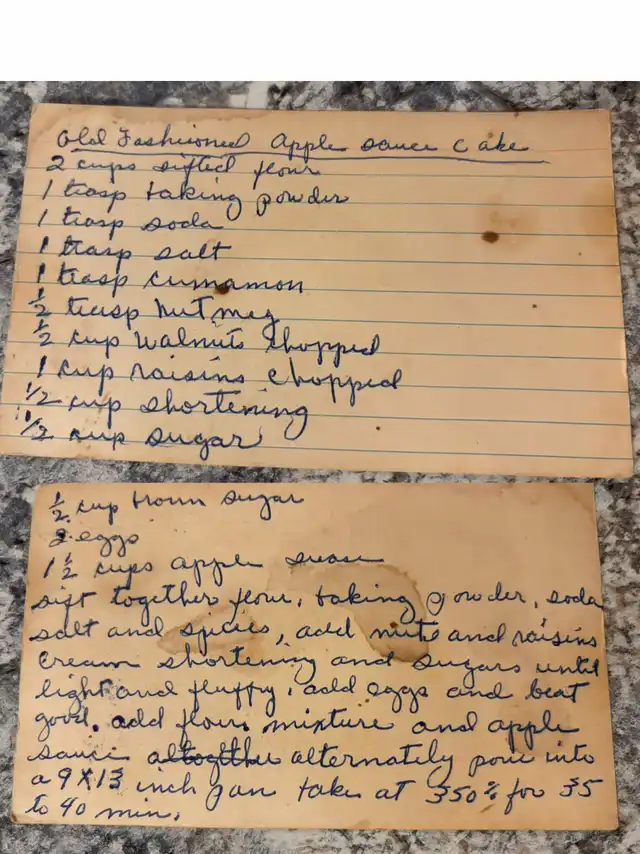 Old Fashioned Apple sauce Cake
2 cups sifted flour
1 teasp baking powder
1 teasp soda
1 teasp salt
1 teasp cinnamon
1/2 teasp nutmeg
1/2 cup walnuts chopped
1 cup raisins chopped
1/2 cup shortening
1/2 cup sugar
1/2 cup brown sugar
2 eggs
1 1/2 cups apple suase
sift together flour, baking powder, soda
salt and spices, add nuts and raisins
Cream shortening and sugars until
light and fluffy, add eggs and beat
good. add flour mixture and apple
sauce alternately pour into
a 9 X 13 inch pan bake at 350° for 35
to 40 min.